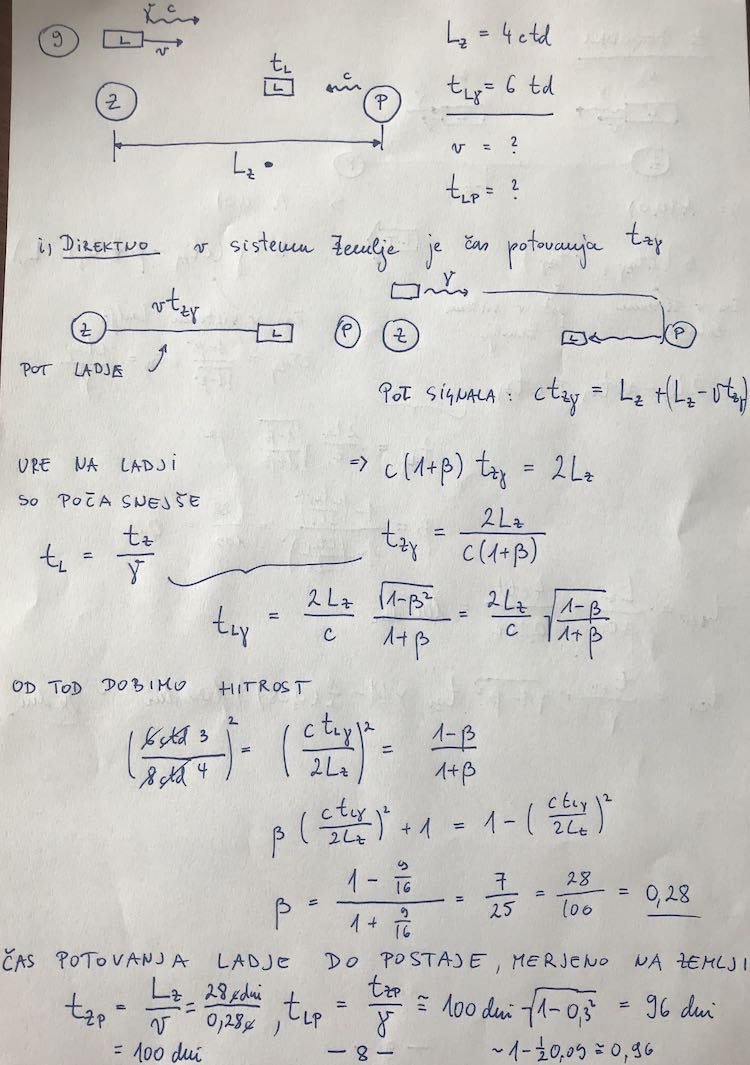 9 L γ c v
L_z = 4 ctd
t_Lγ = 6 td
v = ?
t_LP = ?
Z t_L L c P
L_z
i, DIREKTNO v sistemu Zemlje je čas potovanja t_zγ
Z v t_zγ L P
POT LADJE
γ Z L P
POT SIGNALA : c t_zγ = L_z + (L_z - v t_zγ)
URE NA LADJI
SO POČASNEJŠE
t_L = t_z / γ
=> c(1+β) t_zγ = 2L_z
t_zγ = 2L_z / c(1+β)
t_Lγ = 2L_z / c √(1-β²) / (1+β) = 2L_z / c √((1-β) / (1+β))
OD TOD DOBIMO HITROST
(6 ctd 3 / 8 ctd 4)² = (c t_Lγ / 2L_z)² = (1-β) / (1+β)
β (c t_Lγ / 2L_z)² + 1 = 1 - (c t_Lγ / 2L_z)²
β = (1 - 9/16) / (1 + 9/16) = 7/25 = 28/100 = 0,28
ČAS POTOVANJA LADJE DO POSTAJE, MERJENO NA ZEMLJI
t_ZP = L_z / v = 28 c dni / 0,28 c , t_LP = t_ZP / γ ≅ 100 dni √(1-0,3²) = 96 dni
= 100 dni
~ 1 - ½ 0,09 ≅ 0,96
- 8 -